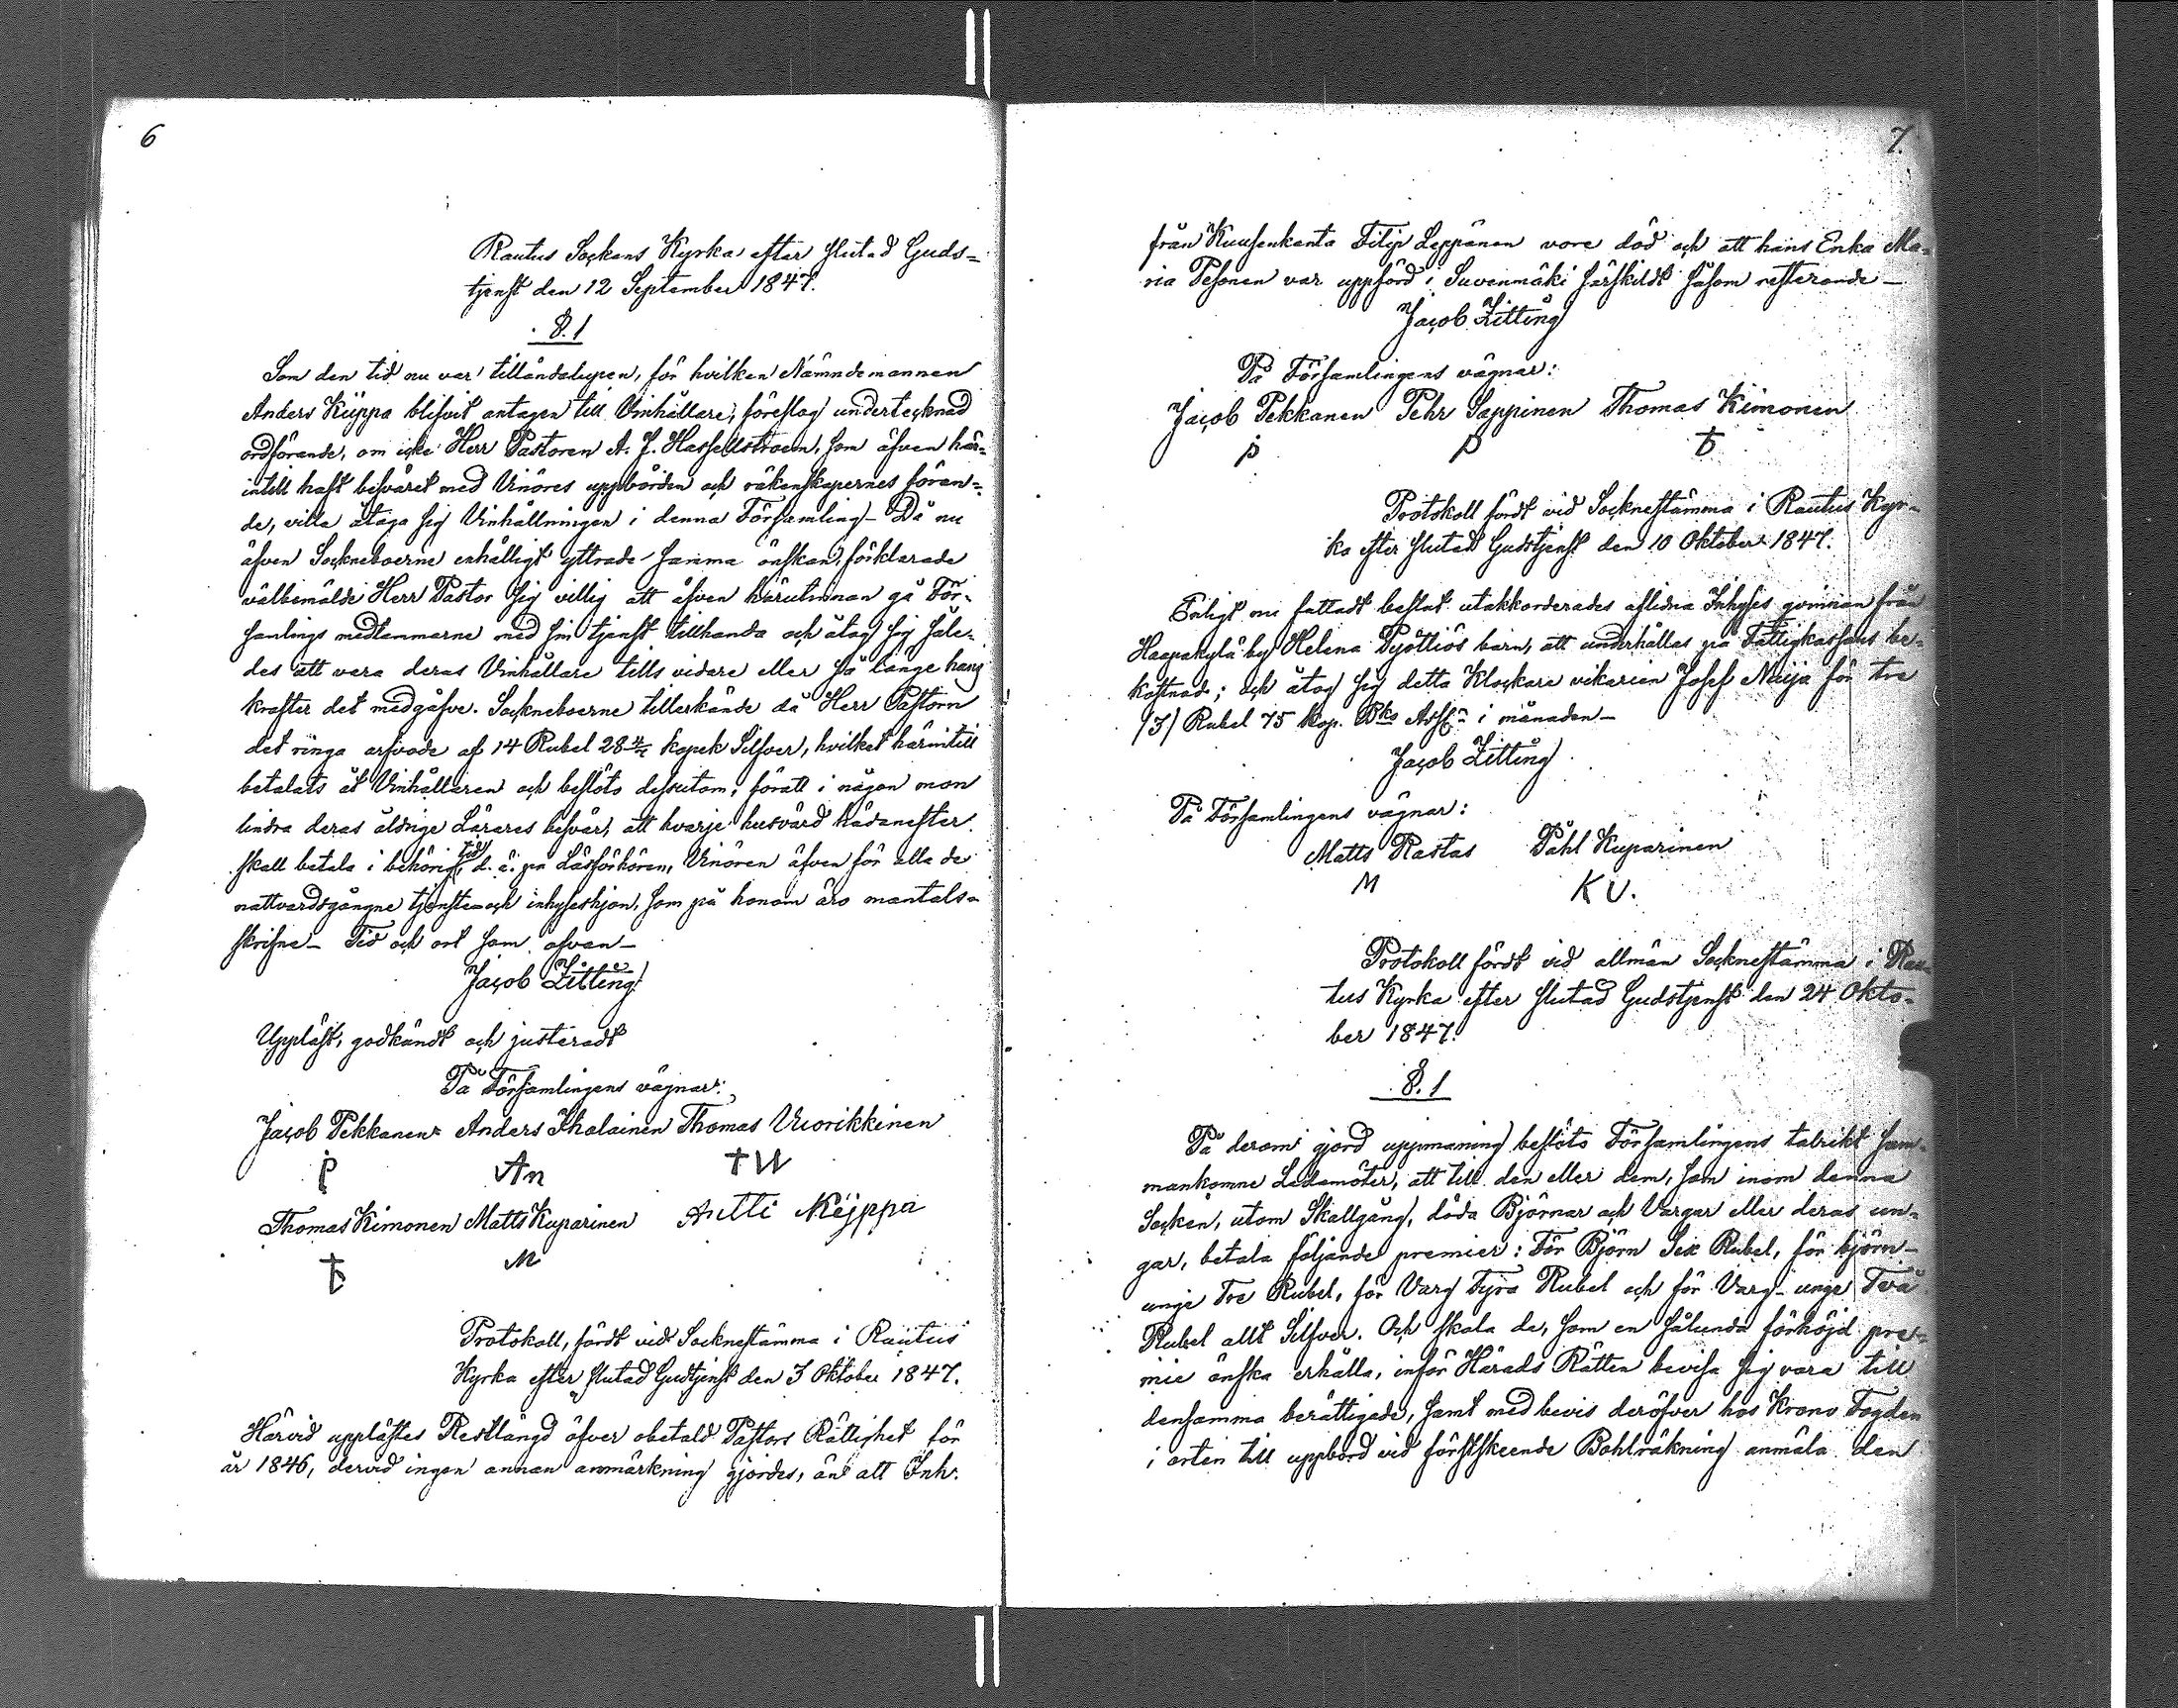 6
Rautus Sockens Kyrka efter slutad Guds-
tjenst den 12 September 1847.
§. 1
Som den tid nu var tilländalupen, för hvilken Nämndemannen
Anders Kiippa blifvit antagen till Vinhållare, föreslog undertecknad
ordförande, om icke Herr Pastoren A. J. Hasselstroem, som äfven här-
intill haft besväret med Vinöres uppbörden och räkenskapernes föran-
de, ville åtaga sig Vinhållningen i denna Församling – Då nu
äfven Sockneboerne enhälligt yttrade samma önskan, förklarade
välbemälde Herr Pastor sig villig att äfven härutinnan gå För-
samlings medlemmarne med sin tjenst tillhanda och åtog sig såle-
des att vara deras Vinhållare tills vidare eller så länge hans
krafter det medgåfve. Sockneboerne tillerkände då Herr Pastorn
det ringa arfvode af 14 Rubel 28 4/7 kopek Silfver, hvilket härintill
betalats åt Vinhållaren och beslöts dessutom, föratt i någon mon
lindra deras åldrige Lärares besvär, att hvarje husvärd hädanefter
skall betala i behörig tid, d. ä. på Läseförhören, Vinören äfven för alla de
nattvardsgångne tjenste- och inhyseshjon, som på honom äro mantals-
skrifne – Tid och ort som ofvan –
Jacob Zitting
Uppläst, godkändt och justeradt
På Församlingens vägnar:
Jacob Pekkanen Anders Ihalainen Thomas Vuorikkinen
P An TW
Thomas Kimonen Matts Kuparinen Antti Kijppa
M
Protokoll, fördt vid Socknestämma i Rautus
Kyrka efter slutad Gudstjenst den 3 Oktober 1847.
Härvid upplästes Restlängd öfver obetald Pastors Rättighet för
år 1846, dervid ingen annan anmärkning gjordes, än att Inh.
7.
från Kuusenkanta Filip Leppänen vore död och att hans Enka Ma-
ria Pesonen var uppförd i Suvenmäki särskildt såsom resterande –
Jacob Zitting
På Församlingens vägnar:
Jacob Pekkanen Pehr Sappinen Thomas Kimonen
p P
Protokoll fördt vid Socknestämma i Rautus Kyr-
ka efter slutad Gudstjenst den 10 Oktober 1847.
Enligt nu fattadt beslut utakkorderades aflidna Inhyses qvinnan från
Haapakylä by Helena Pyöttiös barn, att underhållas på Fattigkassans be-
kostnad; och åtog sig detta Klockare vikarien Josef Naija för tre
/3/ Rubel 75 kop. Bko Assn i månaden –
Jacob Zitting
På Församlingens vägnar:
Matts Rastas Påhl Kuparinen
M KU.
Protokoll fördt vid allmän Socknestämma i Rau-
tus Kyrka efter slutad Gudstjenst den 24 Okto-
ber 1847.
§. 1
På derom gjord uppmaning beslöts Församlingens talrikt sam-
mankomne Ledamöter, att till den eller dem, som inom denna
Socken, utom Skallgång, döda Björnar och Vargar eller deras un-
gar, betala följande premier: För Björn Sex Rubel, för björn-
unge Tre Rubel, för Varg Fyra Rubel och för Varg-unge Två
Rubel allt Silfver. Och skola de, som en sålunda förhöjd pre-
mie önska erhålla, inför Härads Rätten bevisa sig vara till
densamma berättigade, samt med bevis deröfver hos Krono Fogden
i orten till uppbörd vid förstskeende Bohlräkning anmäla den